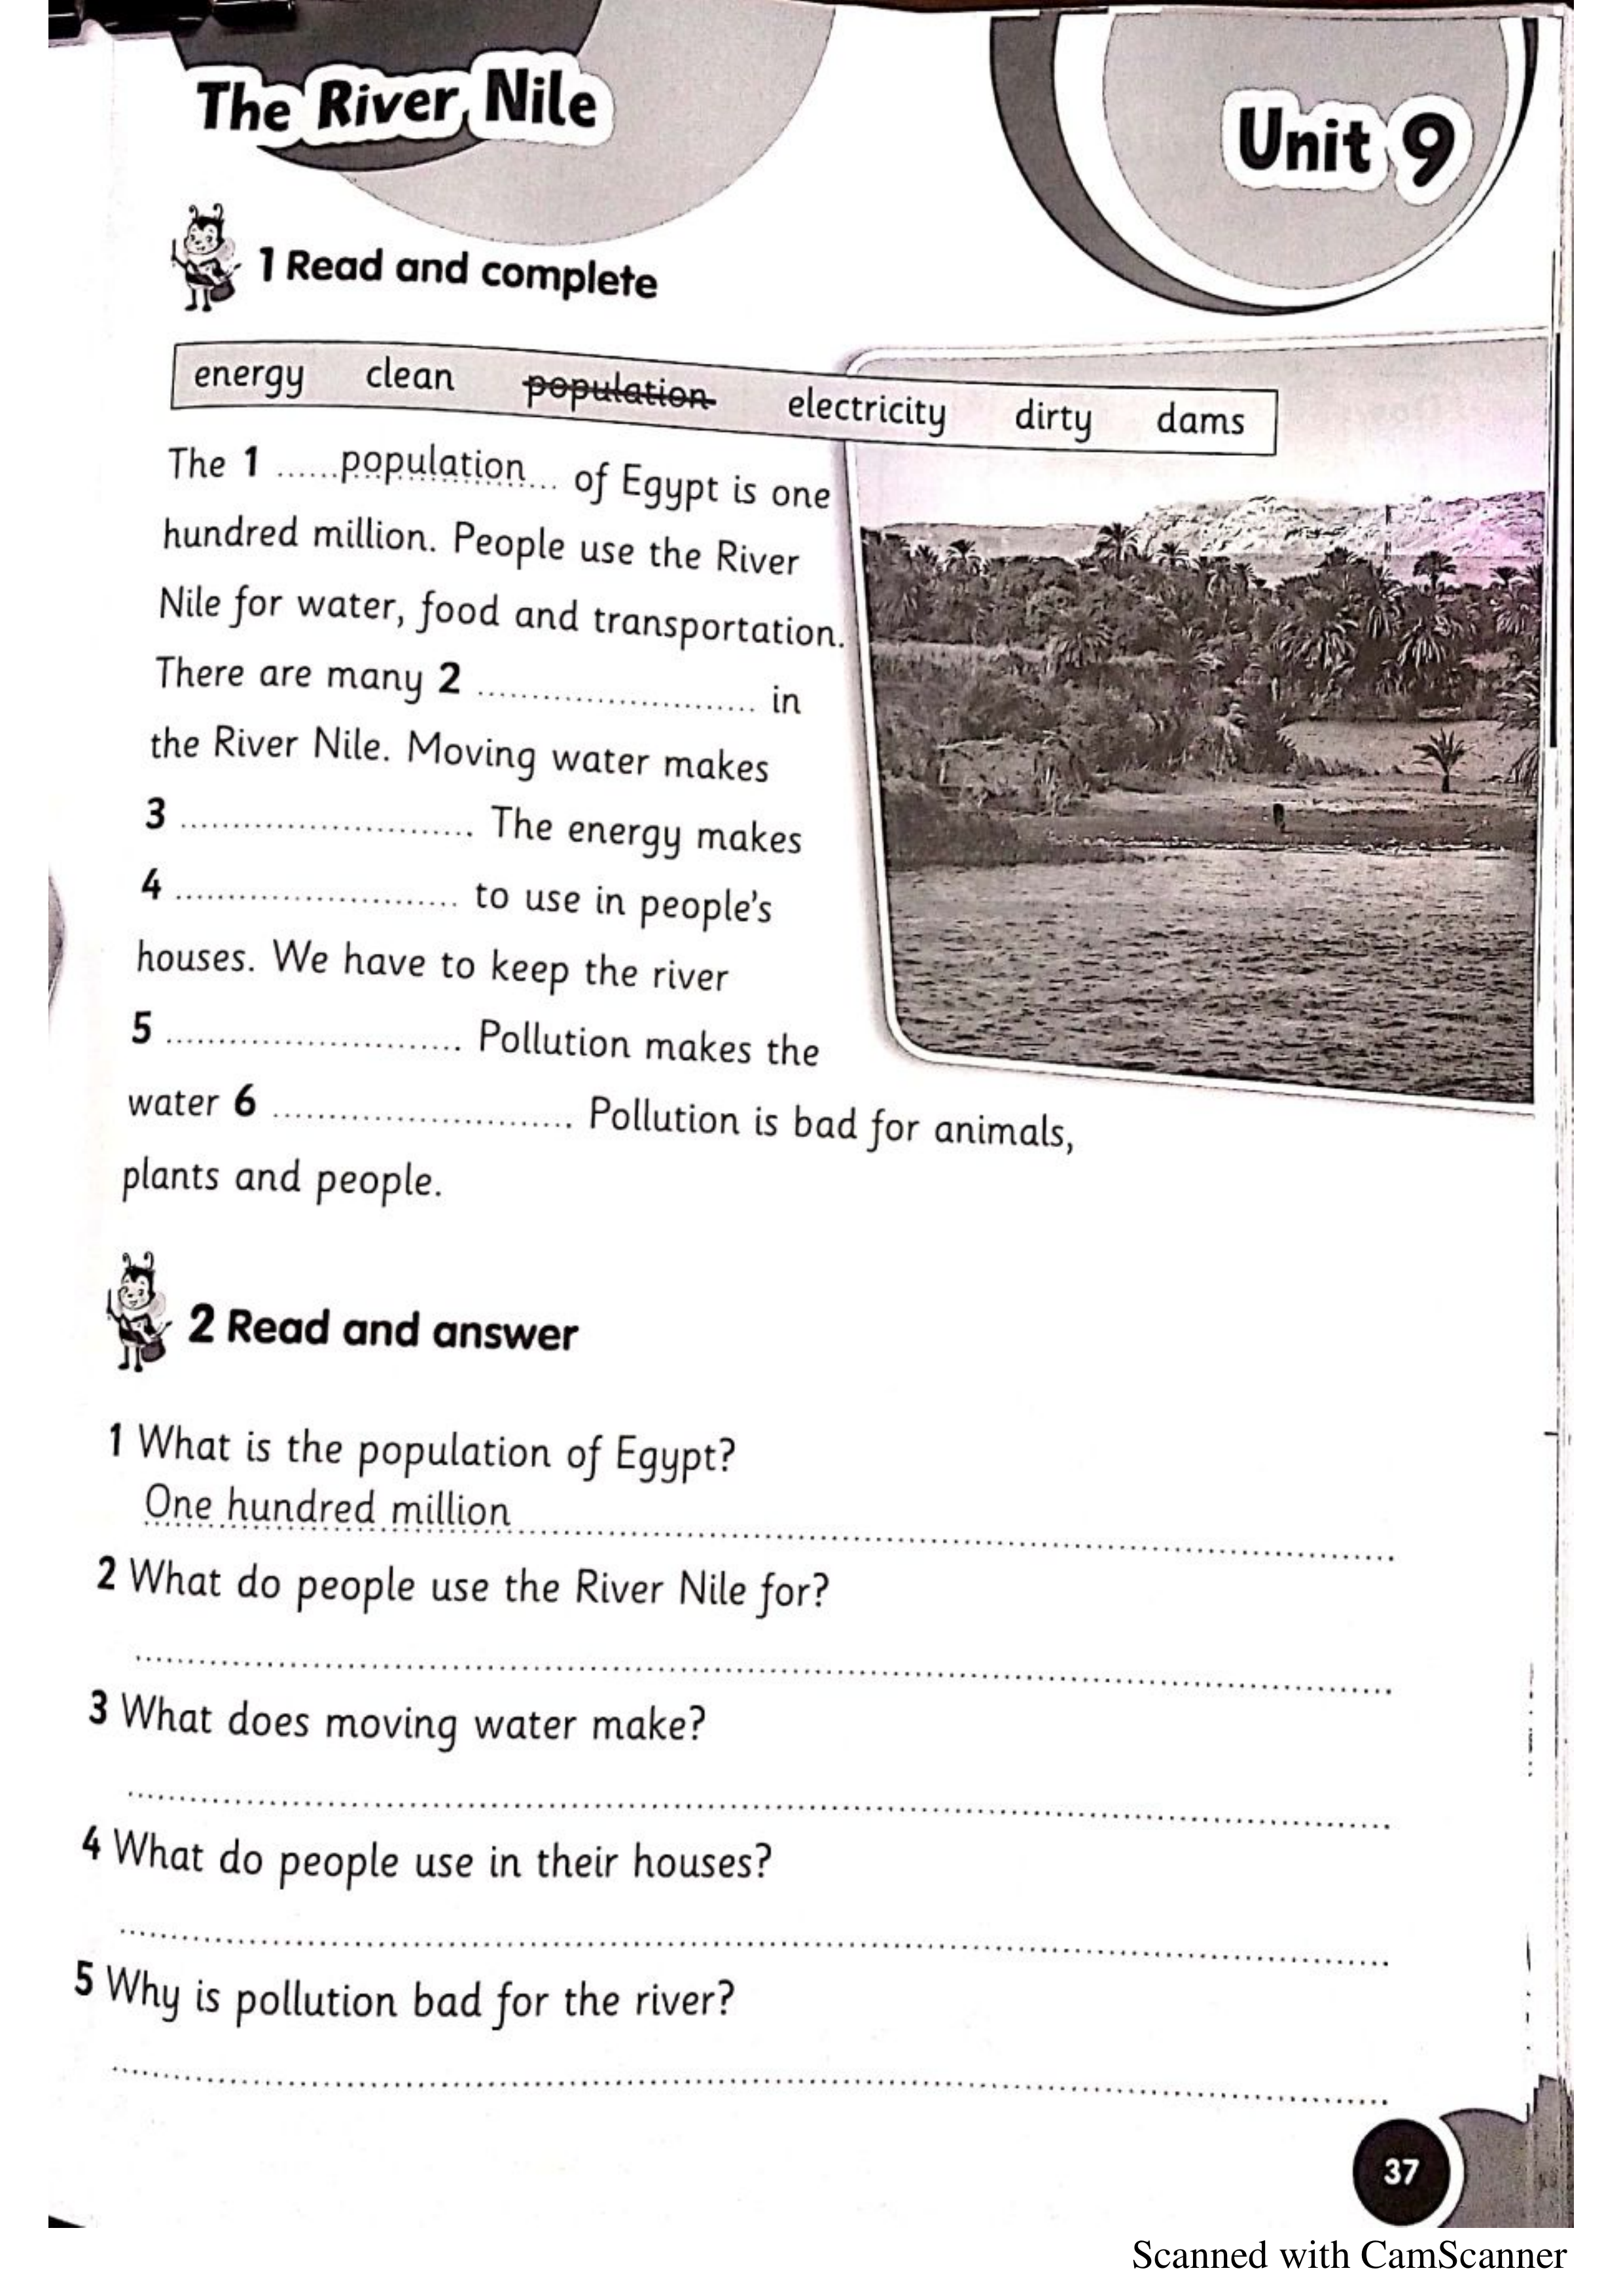 The River Nile
Unit 9
1 Read and complete
energy clean population electricity dirty dams
The 1 ......population... of Egypt is one
hundred million. People use the River
Nile for water, food and transportation.
There are many 2 ........................... in
the River Nile. Moving water makes
3 ............................ The energy makes
4 ........................... to use in people's
houses. We have to keep the river
5 ............................ Pollution makes the
water 6 ............................. Pollution is bad for animals,
plants and people.
2 Read and answer
1 What is the population of Egypt?
One hundred million
2 What do people use the River Nile for?
3 What does moving water make?
4 What do people use in their houses?
5 Why is pollution bad for the river?
37
Scanned with CamScanner